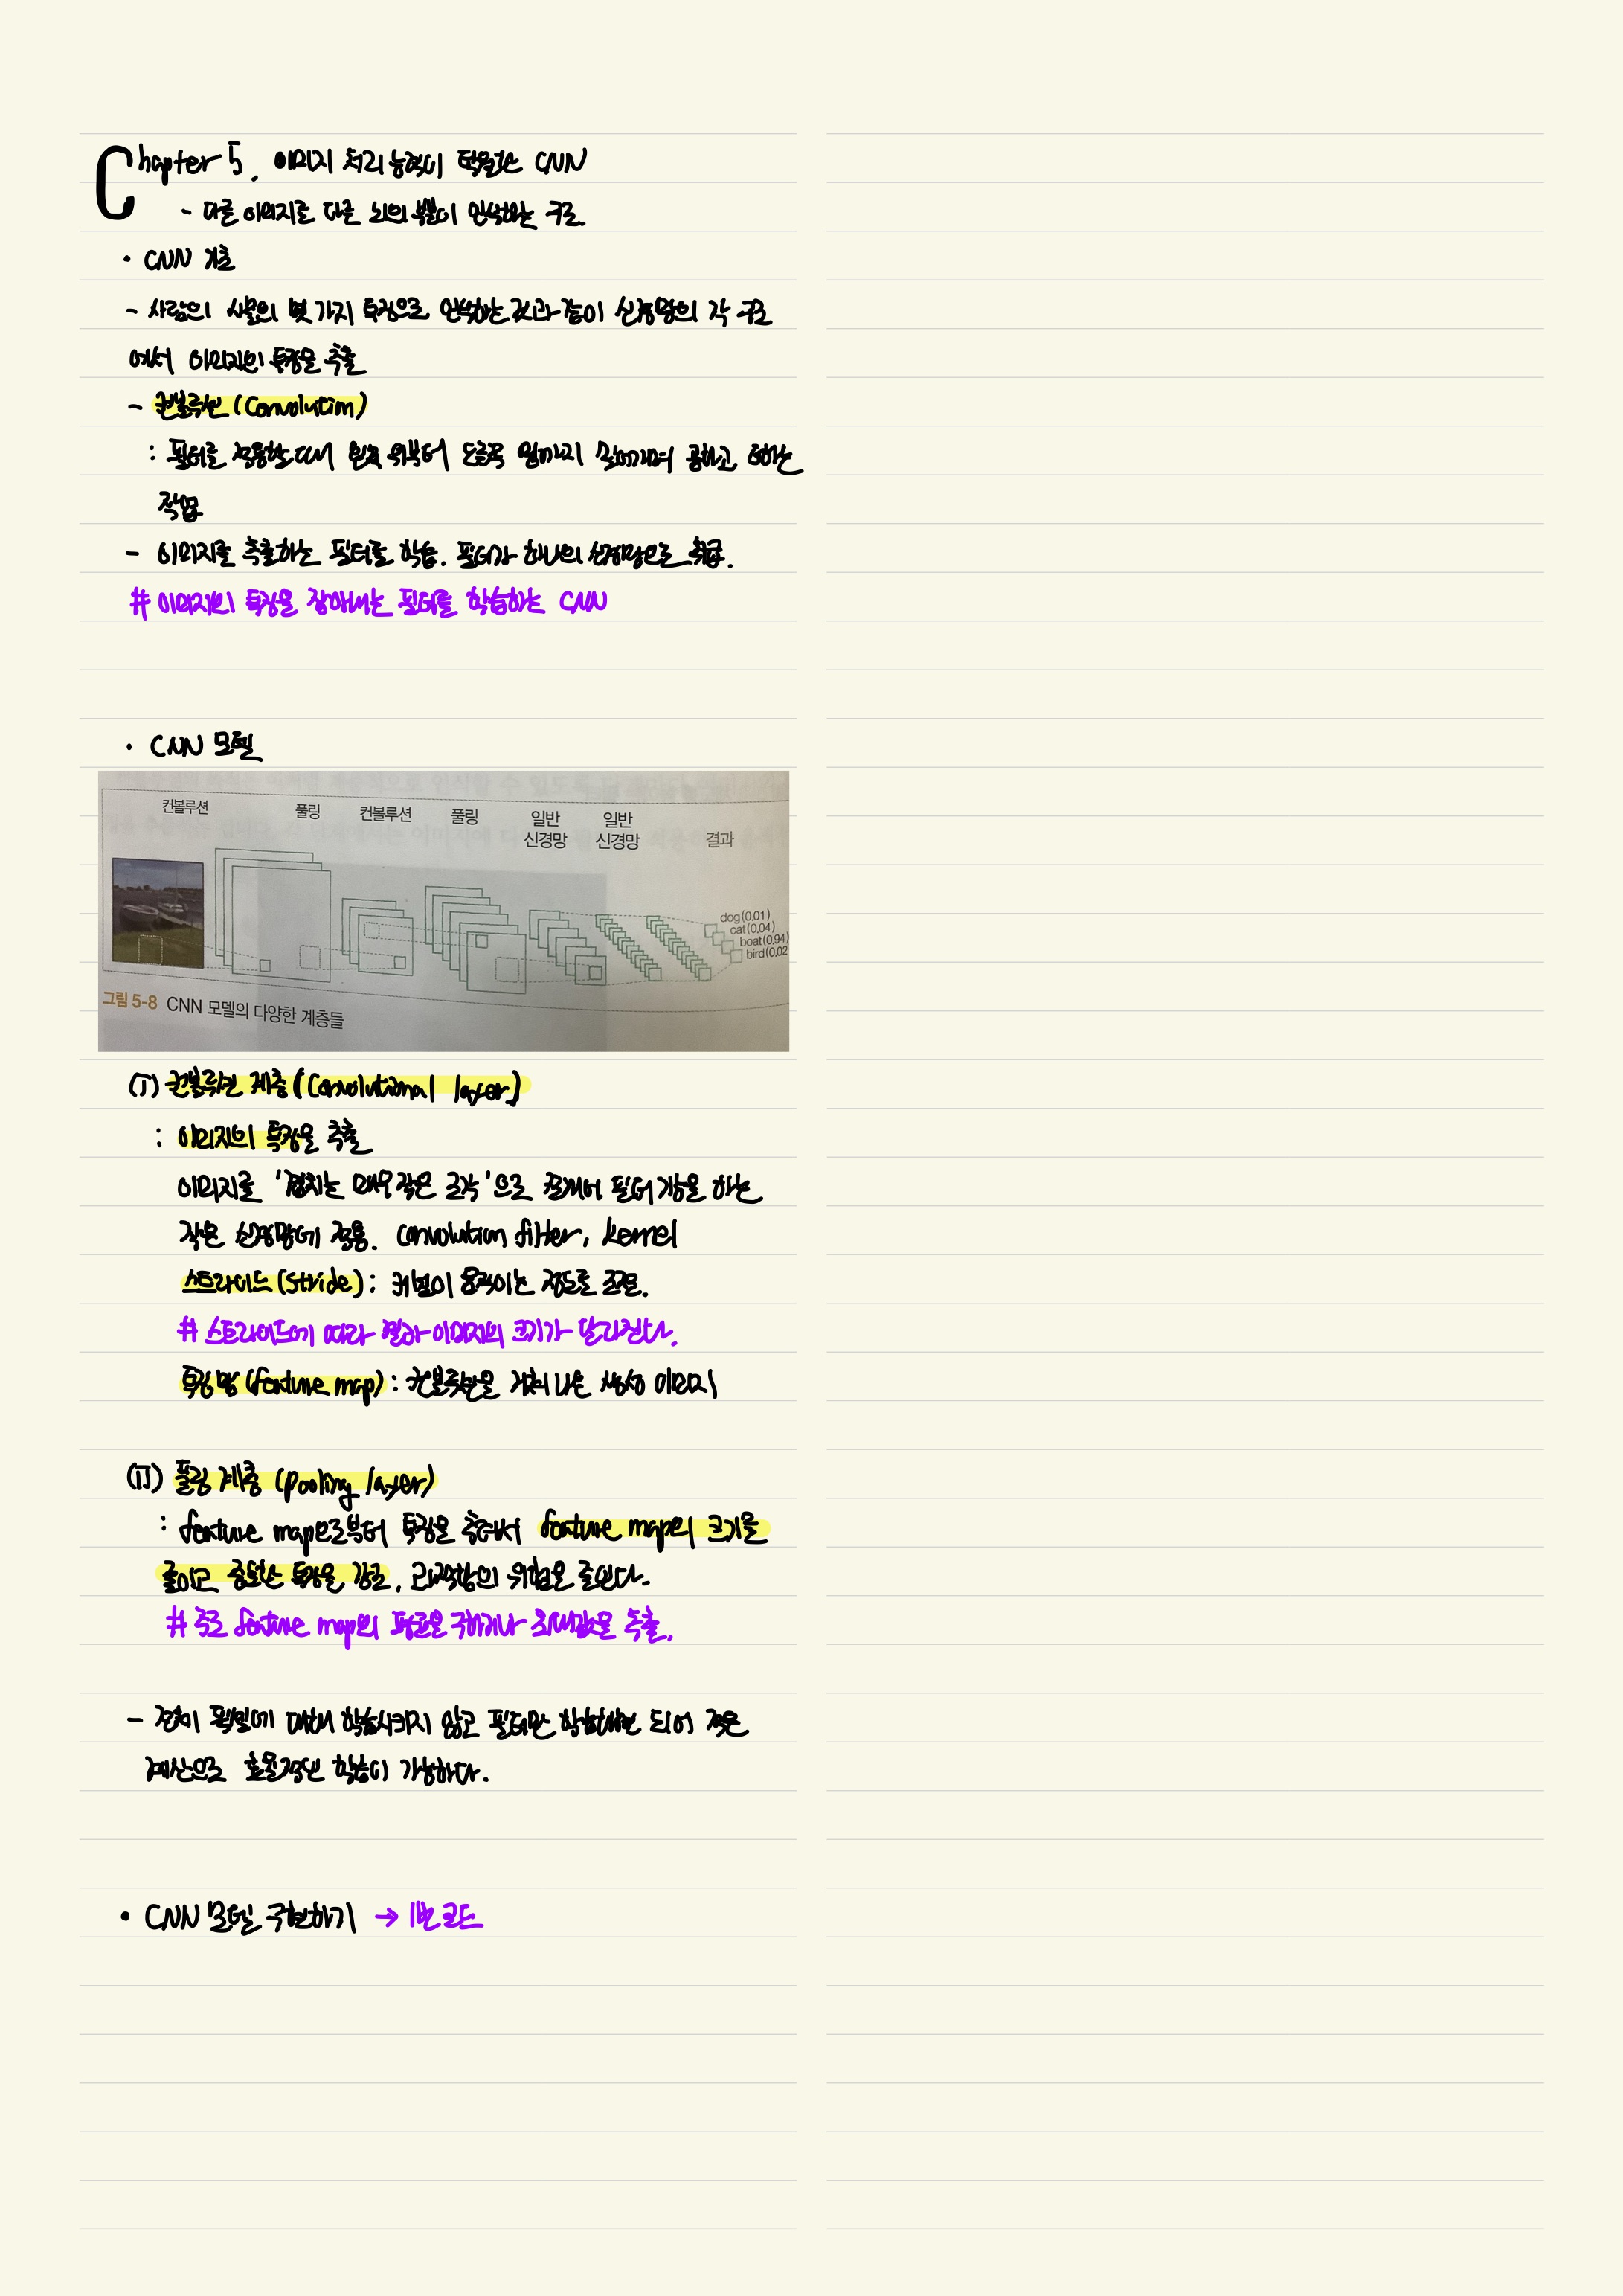 Chapter 5. 이미지 처리 능력이 탁월한 CNN
- 다른 이미지를 다른 뇌의 부분이 인식하는 구조.
• CNN 기초
- 사람의 사물의 몇 가지 특징으로 인식하는 것과 같이 신경망의 각 구조
에서 이미지의 특징을 추출
- 컨볼루션 (Convolution)
: 필터를 적용할 때 왼쪽 위부터 오른쪽 밑까지 밀어가며 곱하고, 더하는
작업
- 이미지를 추출하는 필터를 학습. 필터가 하나의 신경망으로 취급.
# 이미지의 특징을 잡아내는 필터를 학습하는 CNN
• CNN 모델
컨볼루션 풀링 컨볼루션 풀링 일반 신경망 일반 신경망 결과
dog(0.01)
cat(0.04)
boat(0.94)
bird(0.02
그림 5-8 CNN 모델의 다양한 계층들
(I) 컨볼루션 계층 (Convolutional layer)
: 이미지의 특징을 추출
이미지를 '겹치는 매우 작은 조각'으로 쪼개어 필터 기능을 하는
작은 신경망에 적용. Convolution filter, kernel
스트라이드 (stride) : 커널이 움직이는 정도를 조절.
# 스트라이드에 따라 결과 이미지의 크기가 달라진다.
특징 맵 (feature map) : 컨볼루션을 거쳐 나온 생성 이미지
(II) 풀링 계층 (pooling layer)
: feature map으로부터 특징을 추려서 feature map의 크기를
줄이고 중요한 특징을 강조, 과적합의 위험을 줄인다.
# 주로 feature map의 평균을 구하거나 최대값을 추출.
- 전체 픽셀에 대해 학습시키지 않고 필터만 학습하면 되어 적은
계산으로 효율적인 학습이 가능하다.
• CNN 모델 구현하기 → 1번 코드